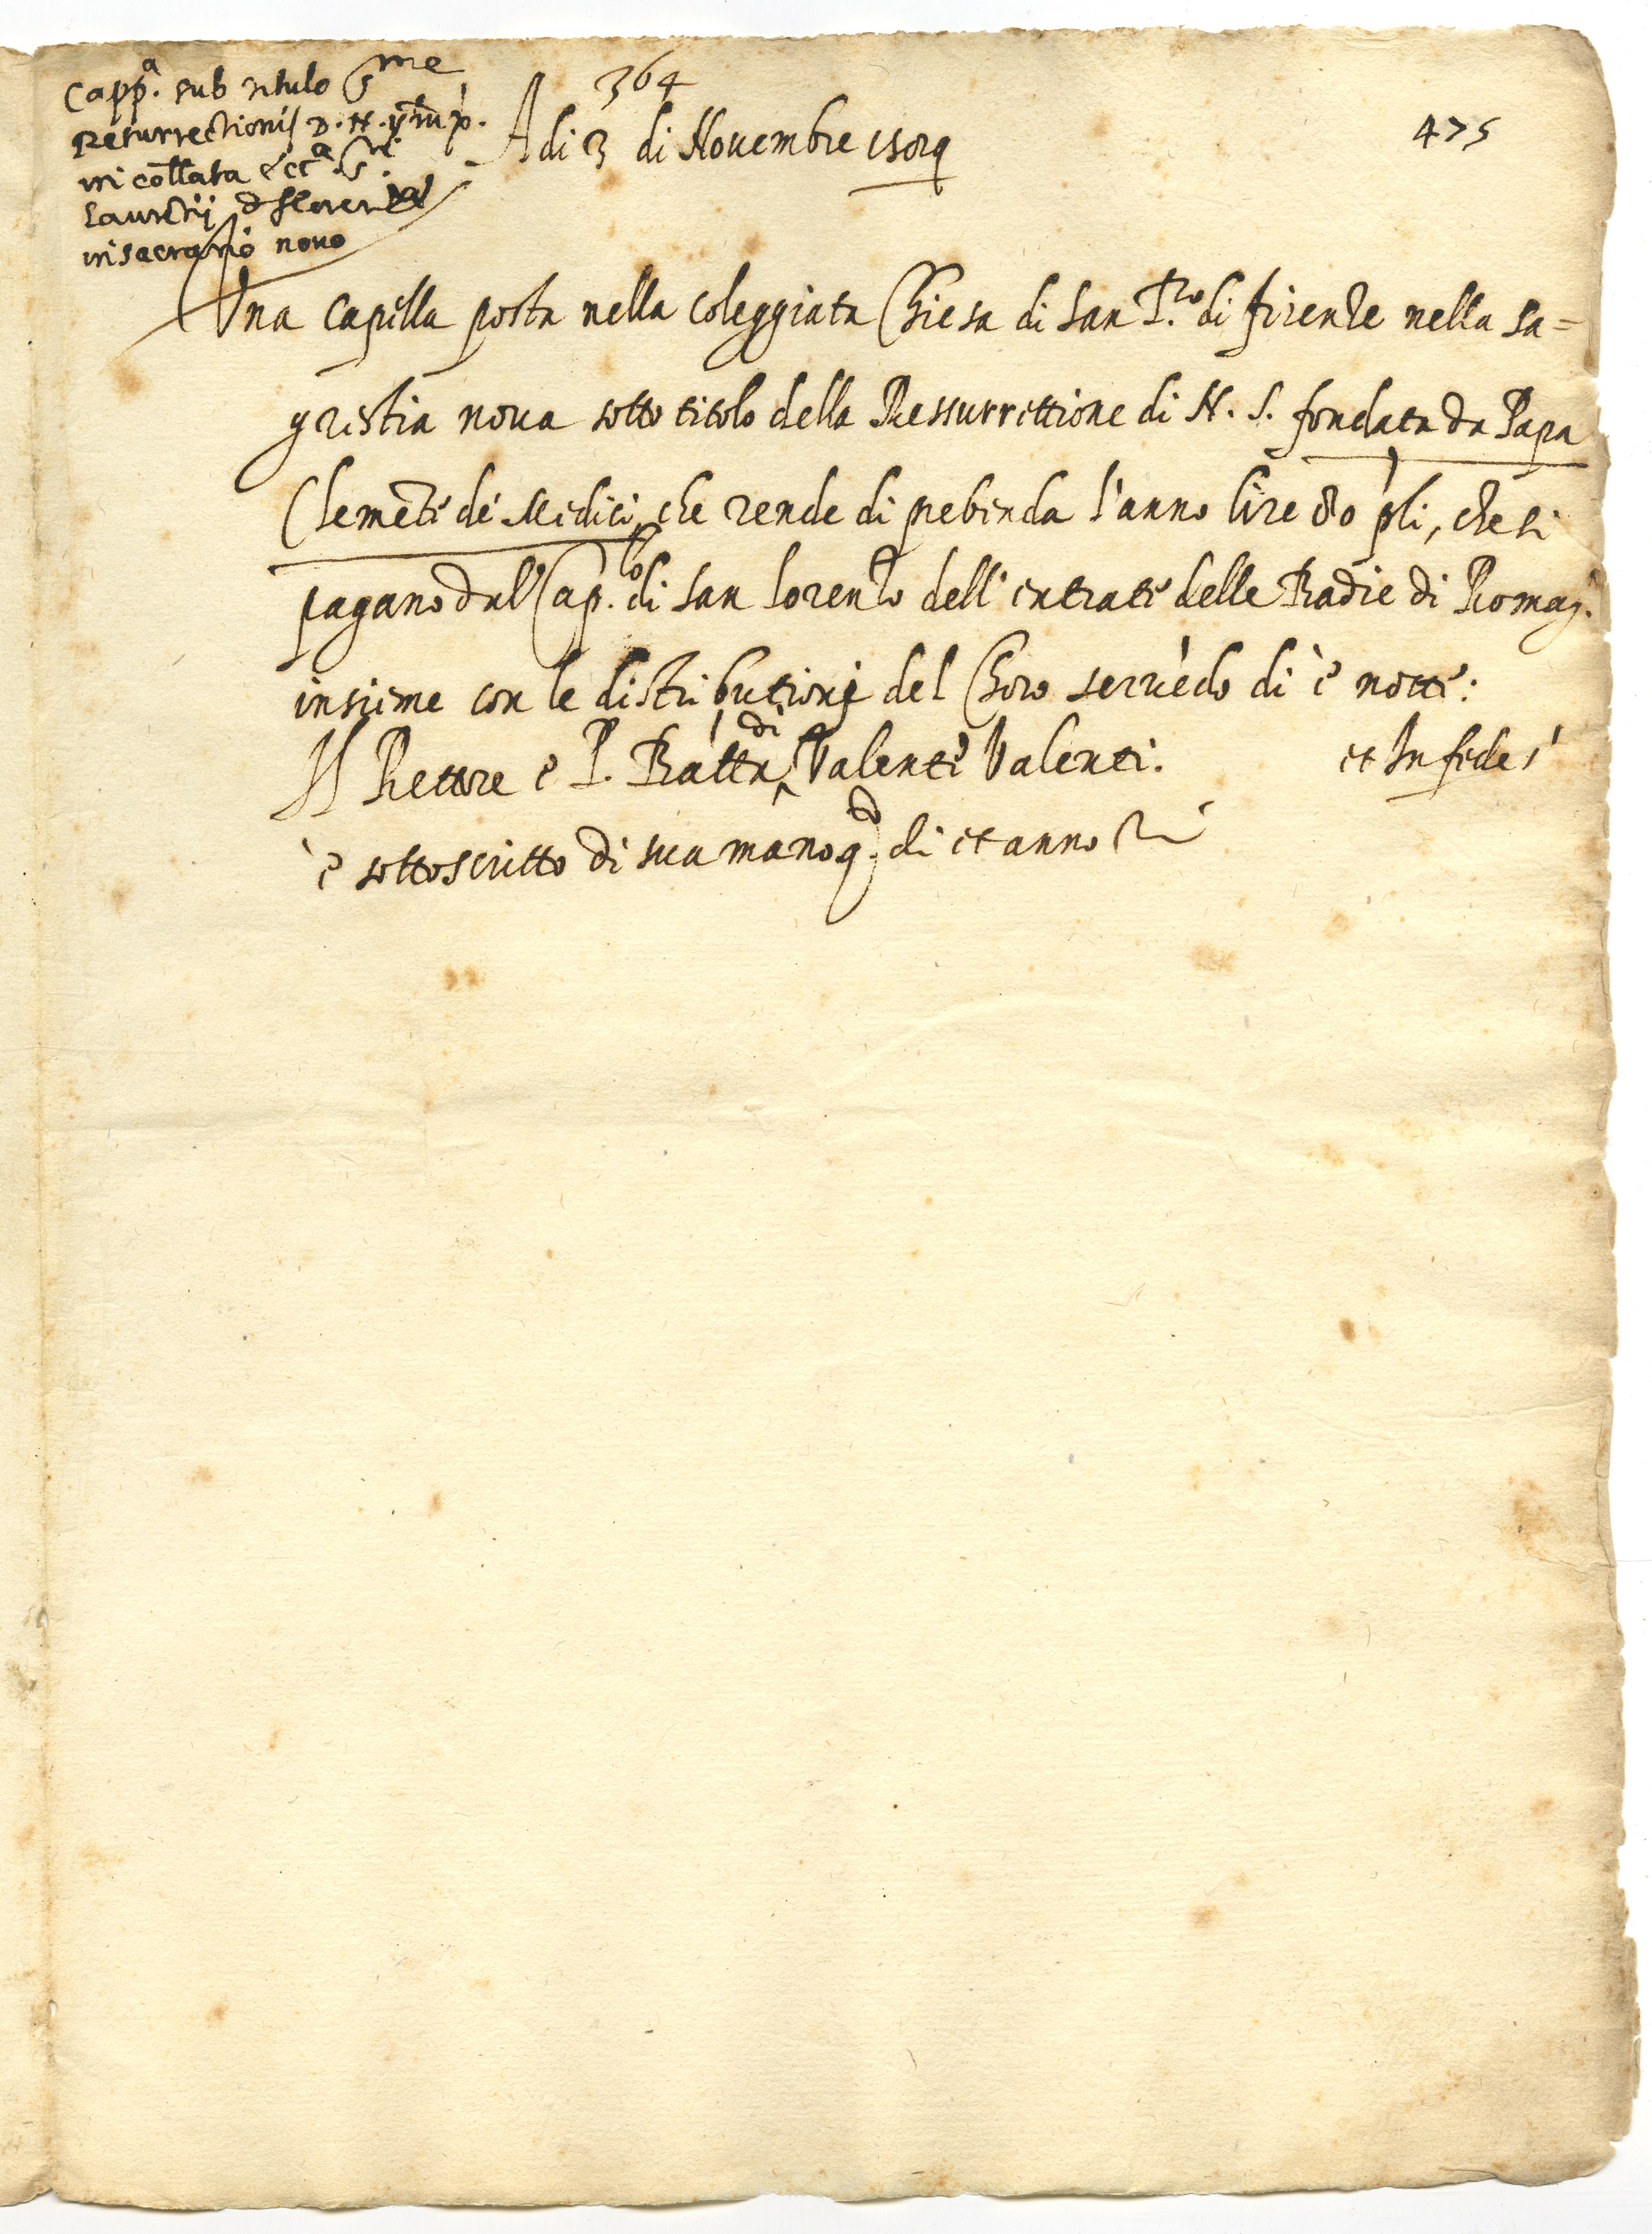 364
475
Capp.a sub titulo S.me
Resurrectionis D. N.
in collata ecc.a S.ti
Laurētij d florentia
in sacrario nouo
A di 3 di Nouembre
Vna Capella posta nella Coleggiata Chiesa di San L.zo di firenze nella Sa=
grestia noua sotto titolo della Ressurrettione di N. S. fondata da Papa
Clemēte de Medici, che rende di prebenda l'anno lire 80 pli, che si
pagano dal Cap.lo di San Lorenzo dell'entrate delle Badie di Romag.
insieme con le distributioni del Choro seruēdo di è notte:
Il Rettore è P. Batta di Valente Valenti. et In fede
è sottoscritto di sua mano q. di et anno